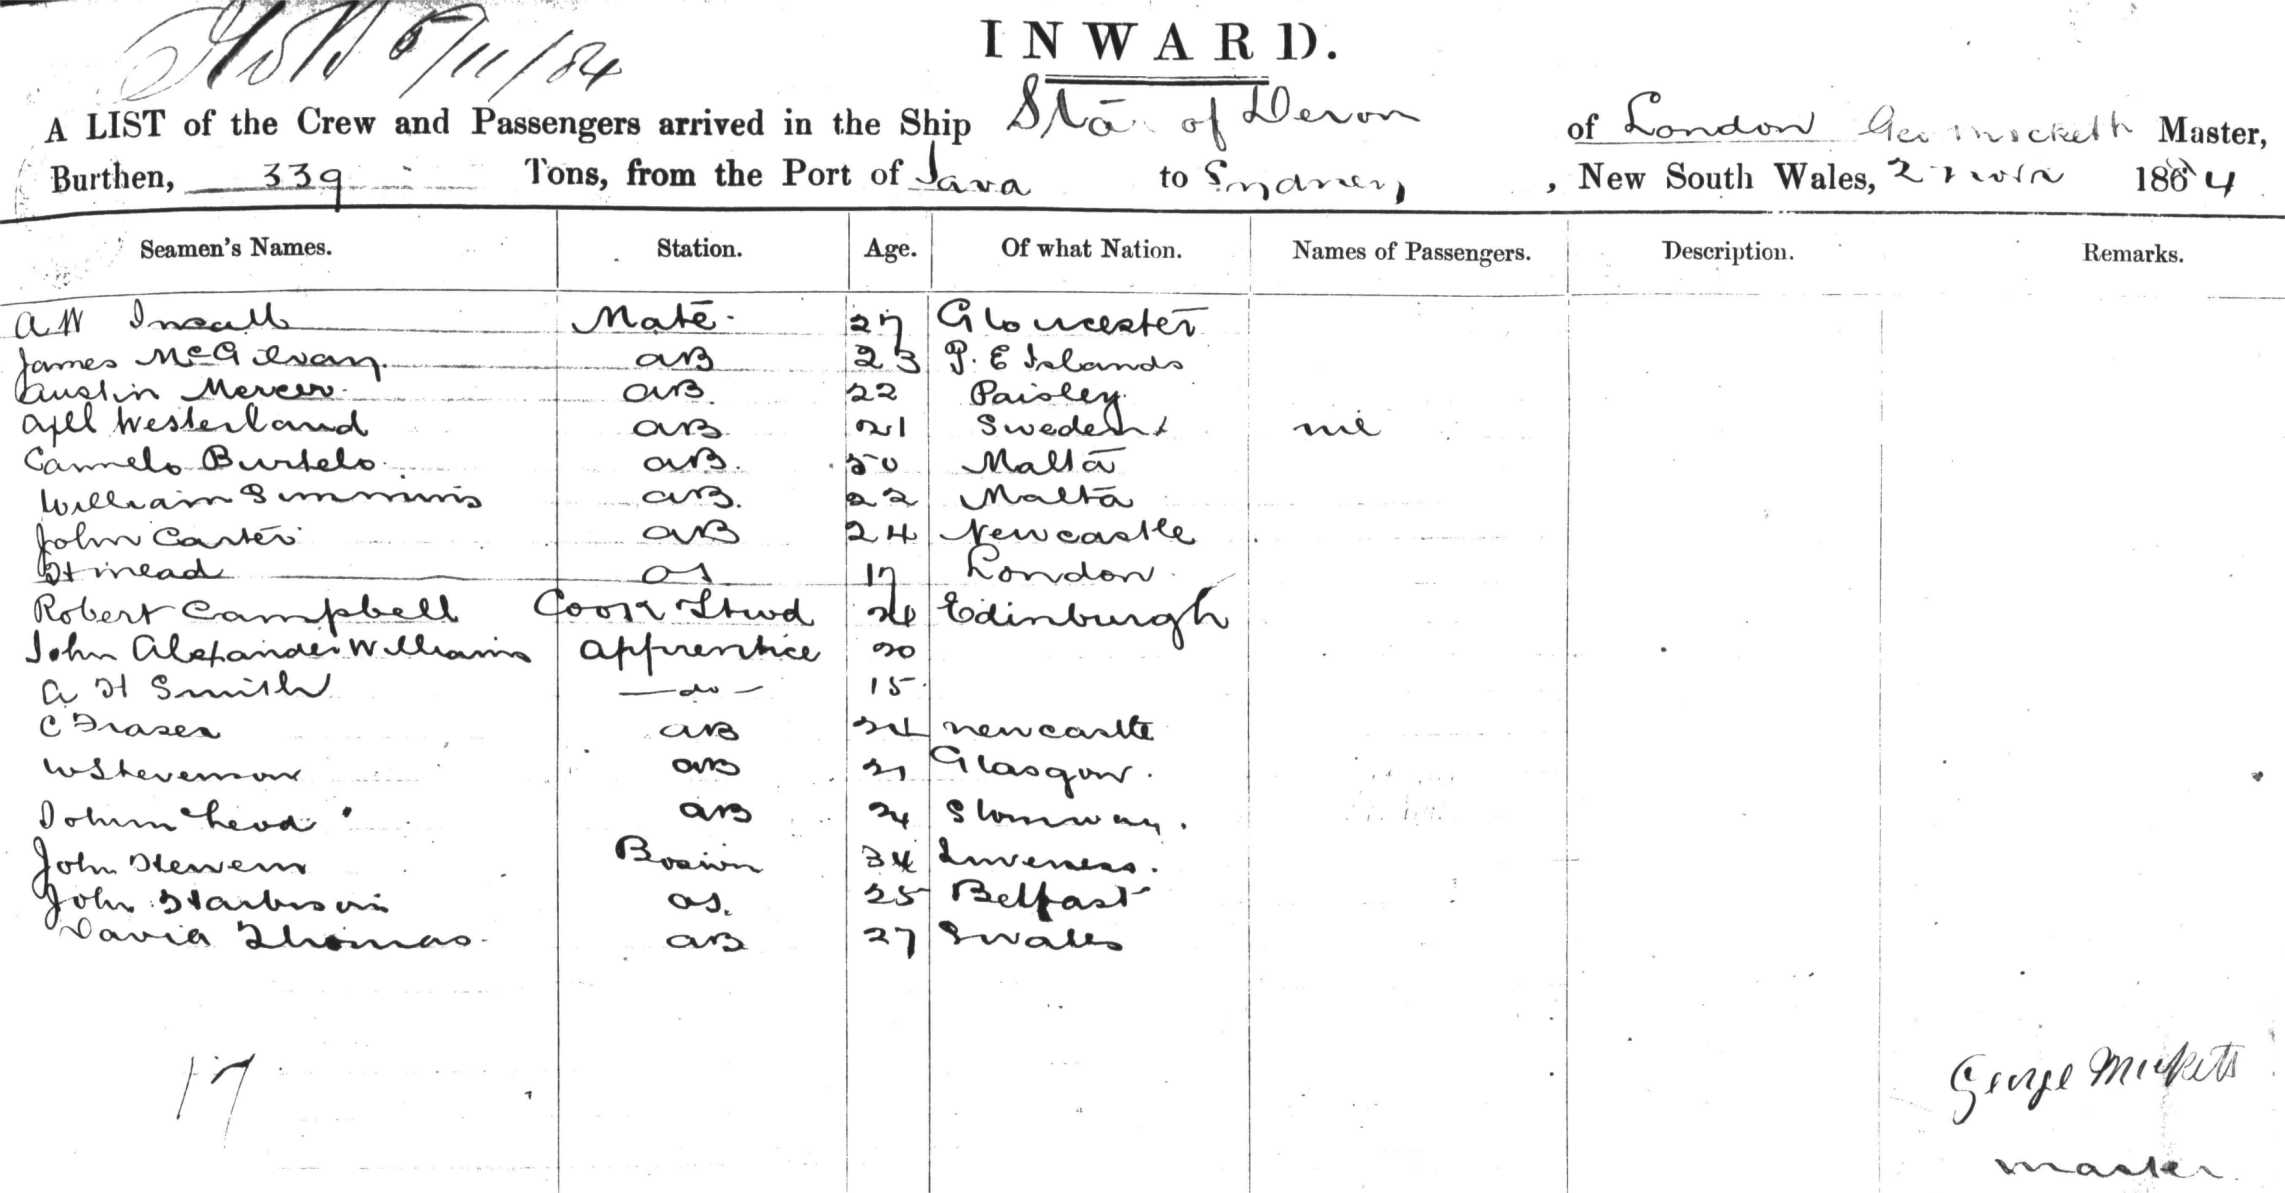 5/11/84
INWARD.
A LIST of the Crew and Passengers arrived in the Ship Sta of Devon of London Geo Master,
Burthen, 339 Tons, from the Port of Java to Sydney, New South Wales, 2 1884
Seamen's Names. Station. Age. Of what Nation. Names of Passengers. Description. Remarks.
A W Insall Mate 27 Gloucester
James McGilvary AB 23 P. E Islands
Austin Mercer AB. 22 Paisley
Axll Westerland AB 21 Sweden nil
Carmelo Burtelo AB. 50 Malta
William Simmins AB. 22 Malta
John Carter AB 24 Newcastle
H Mead OS 17 London
Robert Campbell Cook Stwd Edinburgh
John Alexander Williams Apprentice 20
A H Smith —do— 15
C Fraser AB 24 Newcastle
W Stevenson AB 21 Glasgow.
John AB 24
John Bosun 34 Inverness.
John Harbison OS. 25 Belfast
David Thomas AB 27 S Wales
17
George
Master